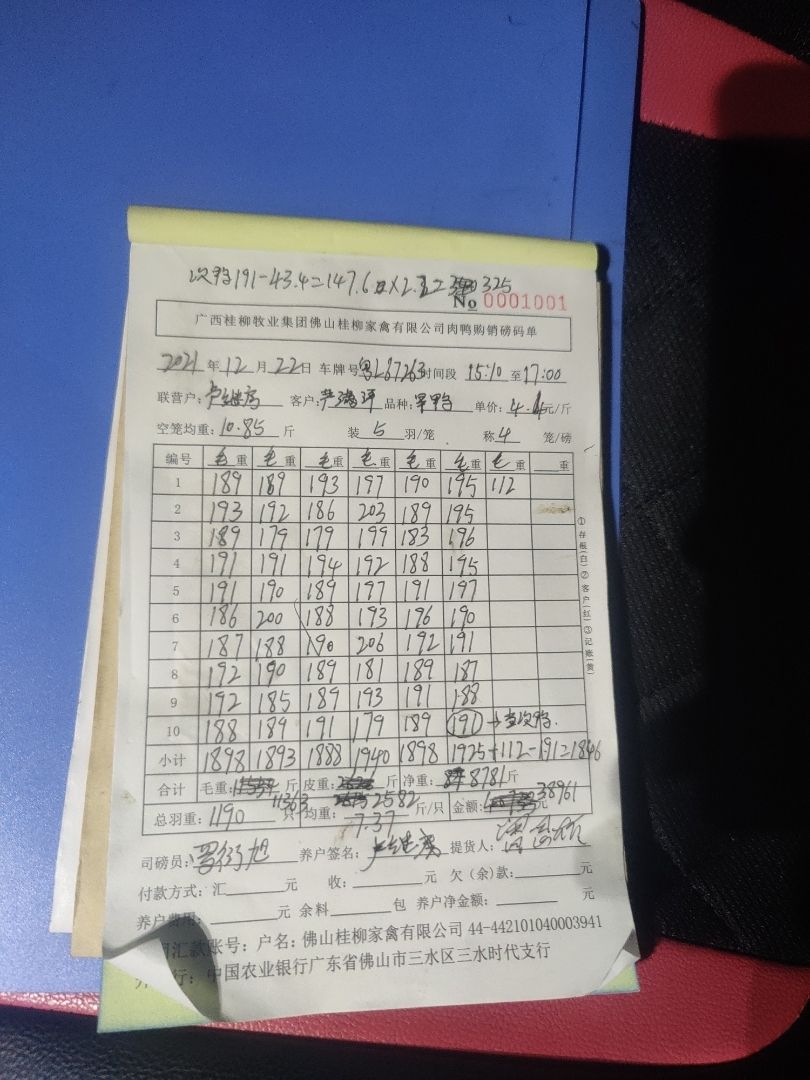 次鸭191-43.4=147.6 ×2.2= 325
No 0001001
广西桂柳牧业集团佛山桂柳家禽有限公司肉鸭购销磅码单
2021年12月22日 车牌号粤L87263时间段 15:10至17:00
联营户: 客户: 品种: 单价:4.4元/斤
空笼均重:10.85斤 装5羽/笼 称4笼/磅
编号 毛重 毛重 毛重 毛重 毛重 毛重 毛重 重
1 189 189 193 197 190 195 112
2 193 192 186 203 189 195
3 189 179 179 199 183 196
4 191 191 194 192 188 195
5 191 190 189 197 191 197
6 186 200 188 193 196 190
7 187 188 190 206 192 191
8 192 190 189 181 189 187
9 192 185 189 193 191 188
10 188 189 191 179 189 191→当次鸭.
小计 1898 1893 1888 1940 1898 1925+112-191=1846
合计 毛重: 斤 皮重: 斤 净重: 8781斤
11363 2582 38961
总羽重:1190只 均重:7.37斤/只 金额: 元
司磅员: 养户签名: 提货人:
付款方式:汇 元 收: 元 欠(余)款: 元
养户费用: 元 余料 包 养户净金额: 元
汇款账号:户名:佛山桂柳家禽有限公司 44-442101040003941
行:中国农业银行广东省佛山市三水区三水时代支行
①存根(白)②客户(红)③记账(黄)